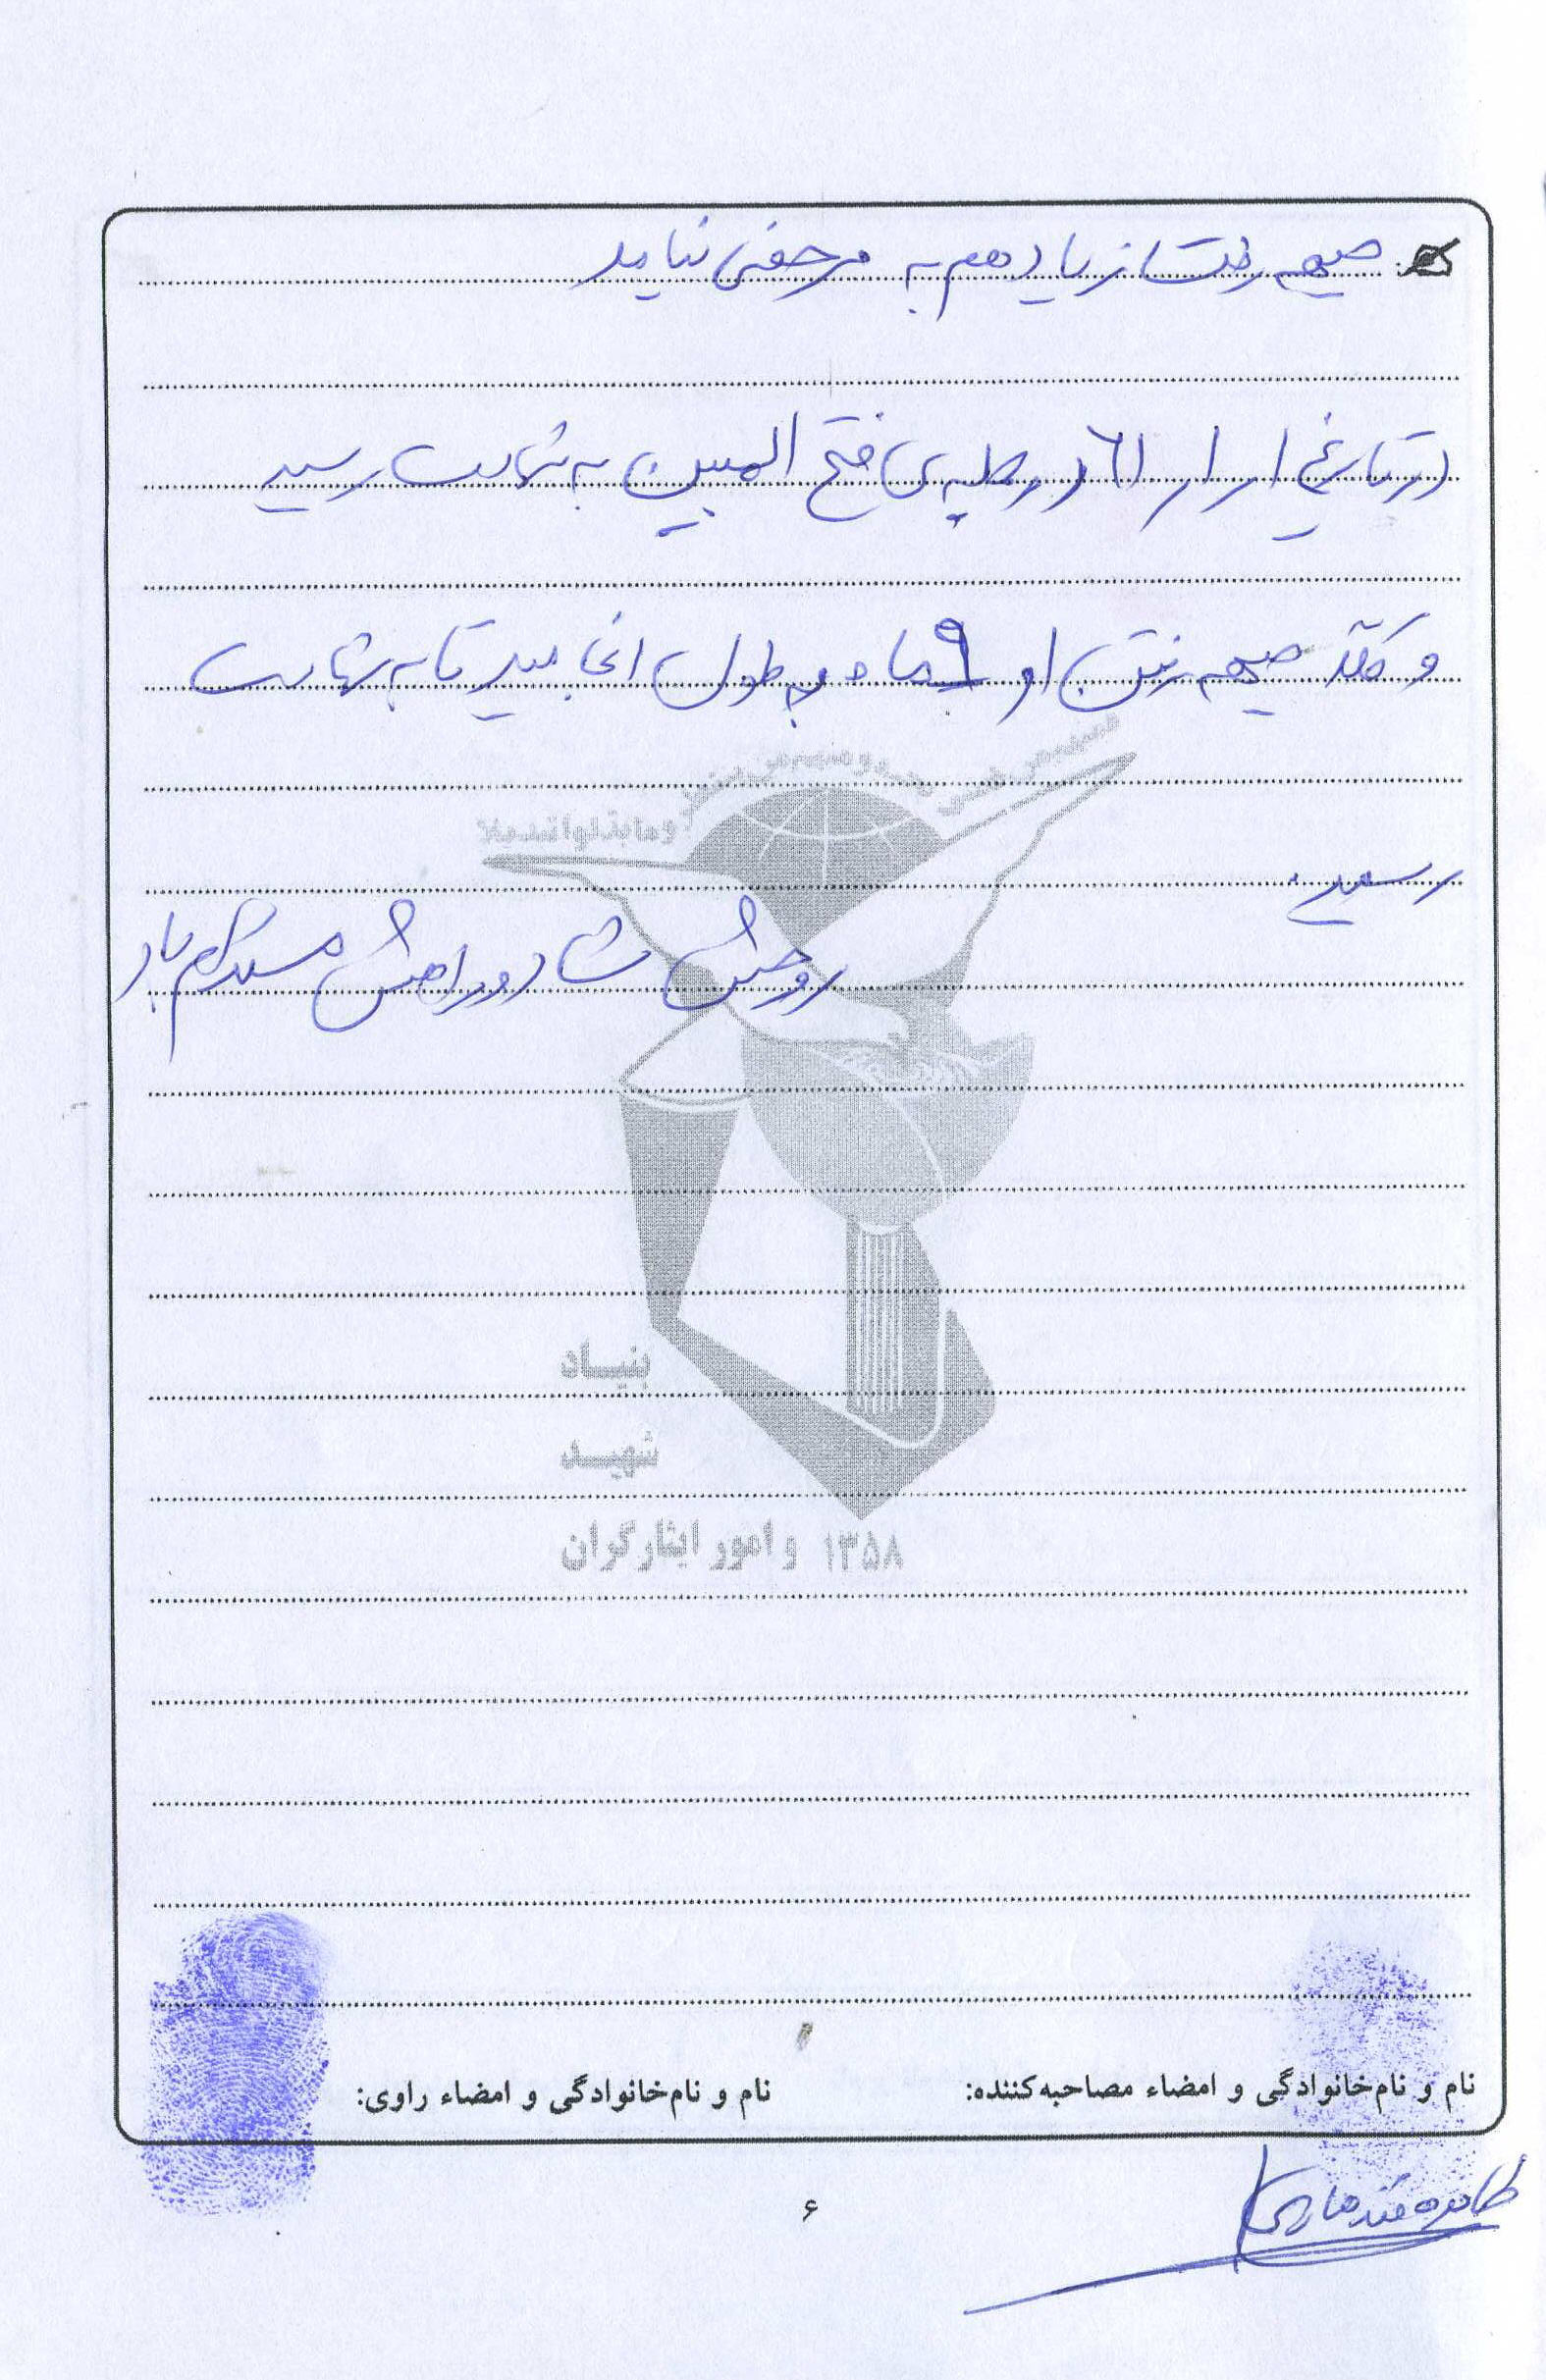 جبهه رفت زیاد هم به مرخصی نیامد
در تاریخ ۱/۱/۶۱ در عملیه ی فتح المبین به شهادت رسید
و کلا جبهه رفتن او ۹ ماه به طول انجامید تا به شهادت
رسید.
روحش شاد و راهش مستدام باد
وما بدلوا تبدیلا
بنیاد
شهید
و امور ایثارگران ۱۳۵۸
نام و نام‌خانوادگی و امضاء مصاحبه‌کننده:
نام و نام‌خانوادگی و امضاء راوی:
طاهره قندهاری
۶